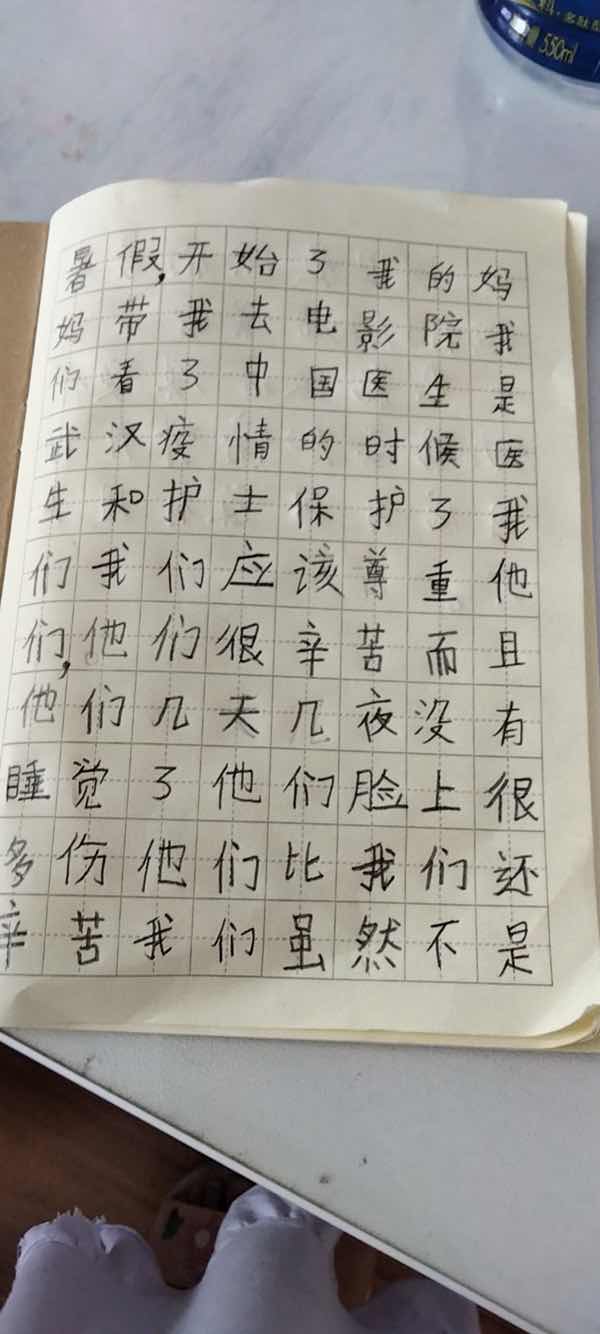 550ml
暑假,开始了我的妈
妈带我去电影院我
们看了中国医生是
武汉疫情的时候医
生和护士保护了我
们我们应该尊重他
们,他们很辛苦而且
他们几天几夜没有
睡觉了他们脸上很
多伤他们比我们还
辛苦我们虽然不是